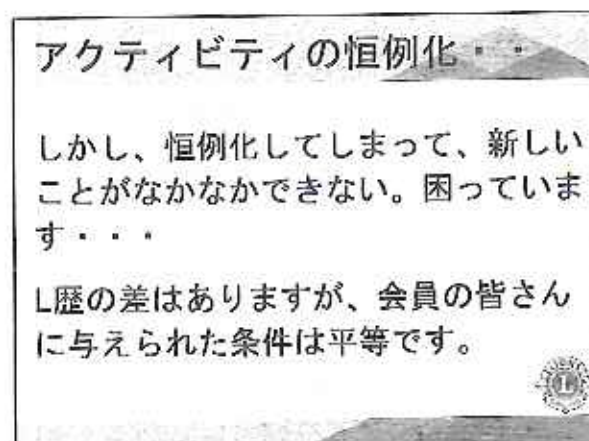 アクティビティの恒例化・・
しかし、恒例化してしまって、新しい
ことがなかなかできない。困っていま
す・・・
L歴の差はありますが、会員の皆さん
に与えられた条件は平等です。
L